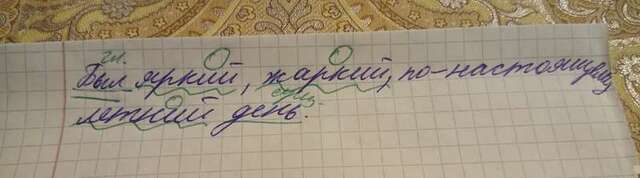 гл.
Был яркий, жаркий, по-настоящему
сущ.
летний день.